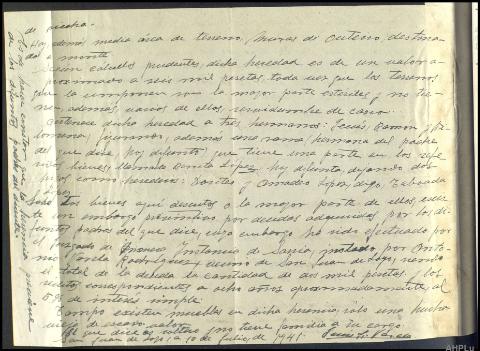 de siembra.
Hay además media área de terreno, Muras de Outeiro destina-
da a monte
Según cálculos prudentes, dicha heredad es de un valor a-
proximado a seis mil pesetas, toda vez que los terrenos
que la componen son la mayor parte estériles y no tie-
nen además, varios de ellos, servidumbre de carro.
Pertenece dicha heredad a tres hermanos: Jesús, Ramón y Fi-
lomena; ignorando, además una rama hermana del padre
del que dice, hoy difunto, que tiene una parte en los refe-
ridos bienes, llamada Benita López, hoy difunta, dejando dos
hijos como herederos: Dositeo y Amadeo López, digo, Taboada
López.
Sobre los bienes aquí descritos o la mayor parte de ellos, exis-
te un embargo preventivo por deudas adquiridas por los di-
funtos padres del que dice, cuyo embargo ha sido efectuado por
el Juzgado de Primera Instancia de Sarria, instado por Anto-
nio Varela Rodríguez, vecino de San Juan de Lozo, siendo
el total de la deuda la cantidad de dos mil pesetas y los
réditos correspondientes a ocho años aproximadamente, al
5% de interés simple.
Tampoco existen muebles en dicha herencia, sólo una hucha
vieja de escaso valor.
El que dice es soltero y no tiene familia a su cargo.
San Juan de Lozo, a 10 de julio, de 1941.
AHPLu